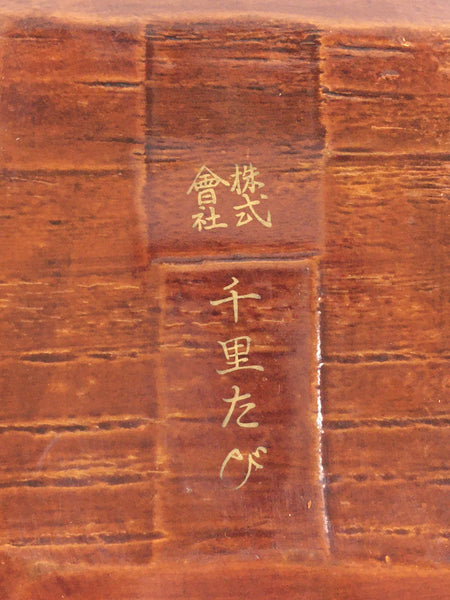 株式
會社
千里たび